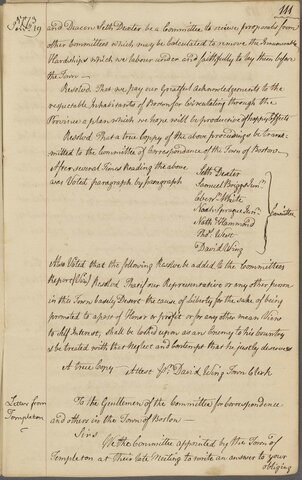 111
1773
and Deacon Seth Dexter be a Committee, to recieve proposals from
other Committees which may be Calculated to remove the Innumerable
Hardships which we labour under and faithfully to lay them before
the Town—
Resolved That we pay our Greatful acknowledgements to the
respectable Inhabitants of Boston for Circulating through the
Province a plan which we hope will be productive of happy Effects
Resolved That a true Copy of the above proceedings be Trans-
mitted to the Committee of Correspondence of the Town of Boston
After several Times Reading the above
was Voted paragraph by paragraph
Seth Dexter
Samuel Briggs
Ebenr. White
Noah Sprague Junr.
Nathl. Hammond
Thos. West
David Wing
Committee
Also Voted that the following Resolve be added to the Committees
Report (Viz) Resolved That if our Representative or any other person
in this Town basely Desert the cause of Liberty for the sake of being
promoted to a post of Honor or profit or for any other mean View
to Self Interest, shall be looked upon as an Enemy to his Country
& be treated with that Neglect and Contempt that he justly deserves
A true Copy Attest David Wing Town Clerk
Letter from
Templeton
To the Gentlemen of the Committee for Correspondence
and others in the Town of Boston—
Sirs
We the Committee appointed by the Town of
Templeton at Their late Meeting to write an answer to your
obliging